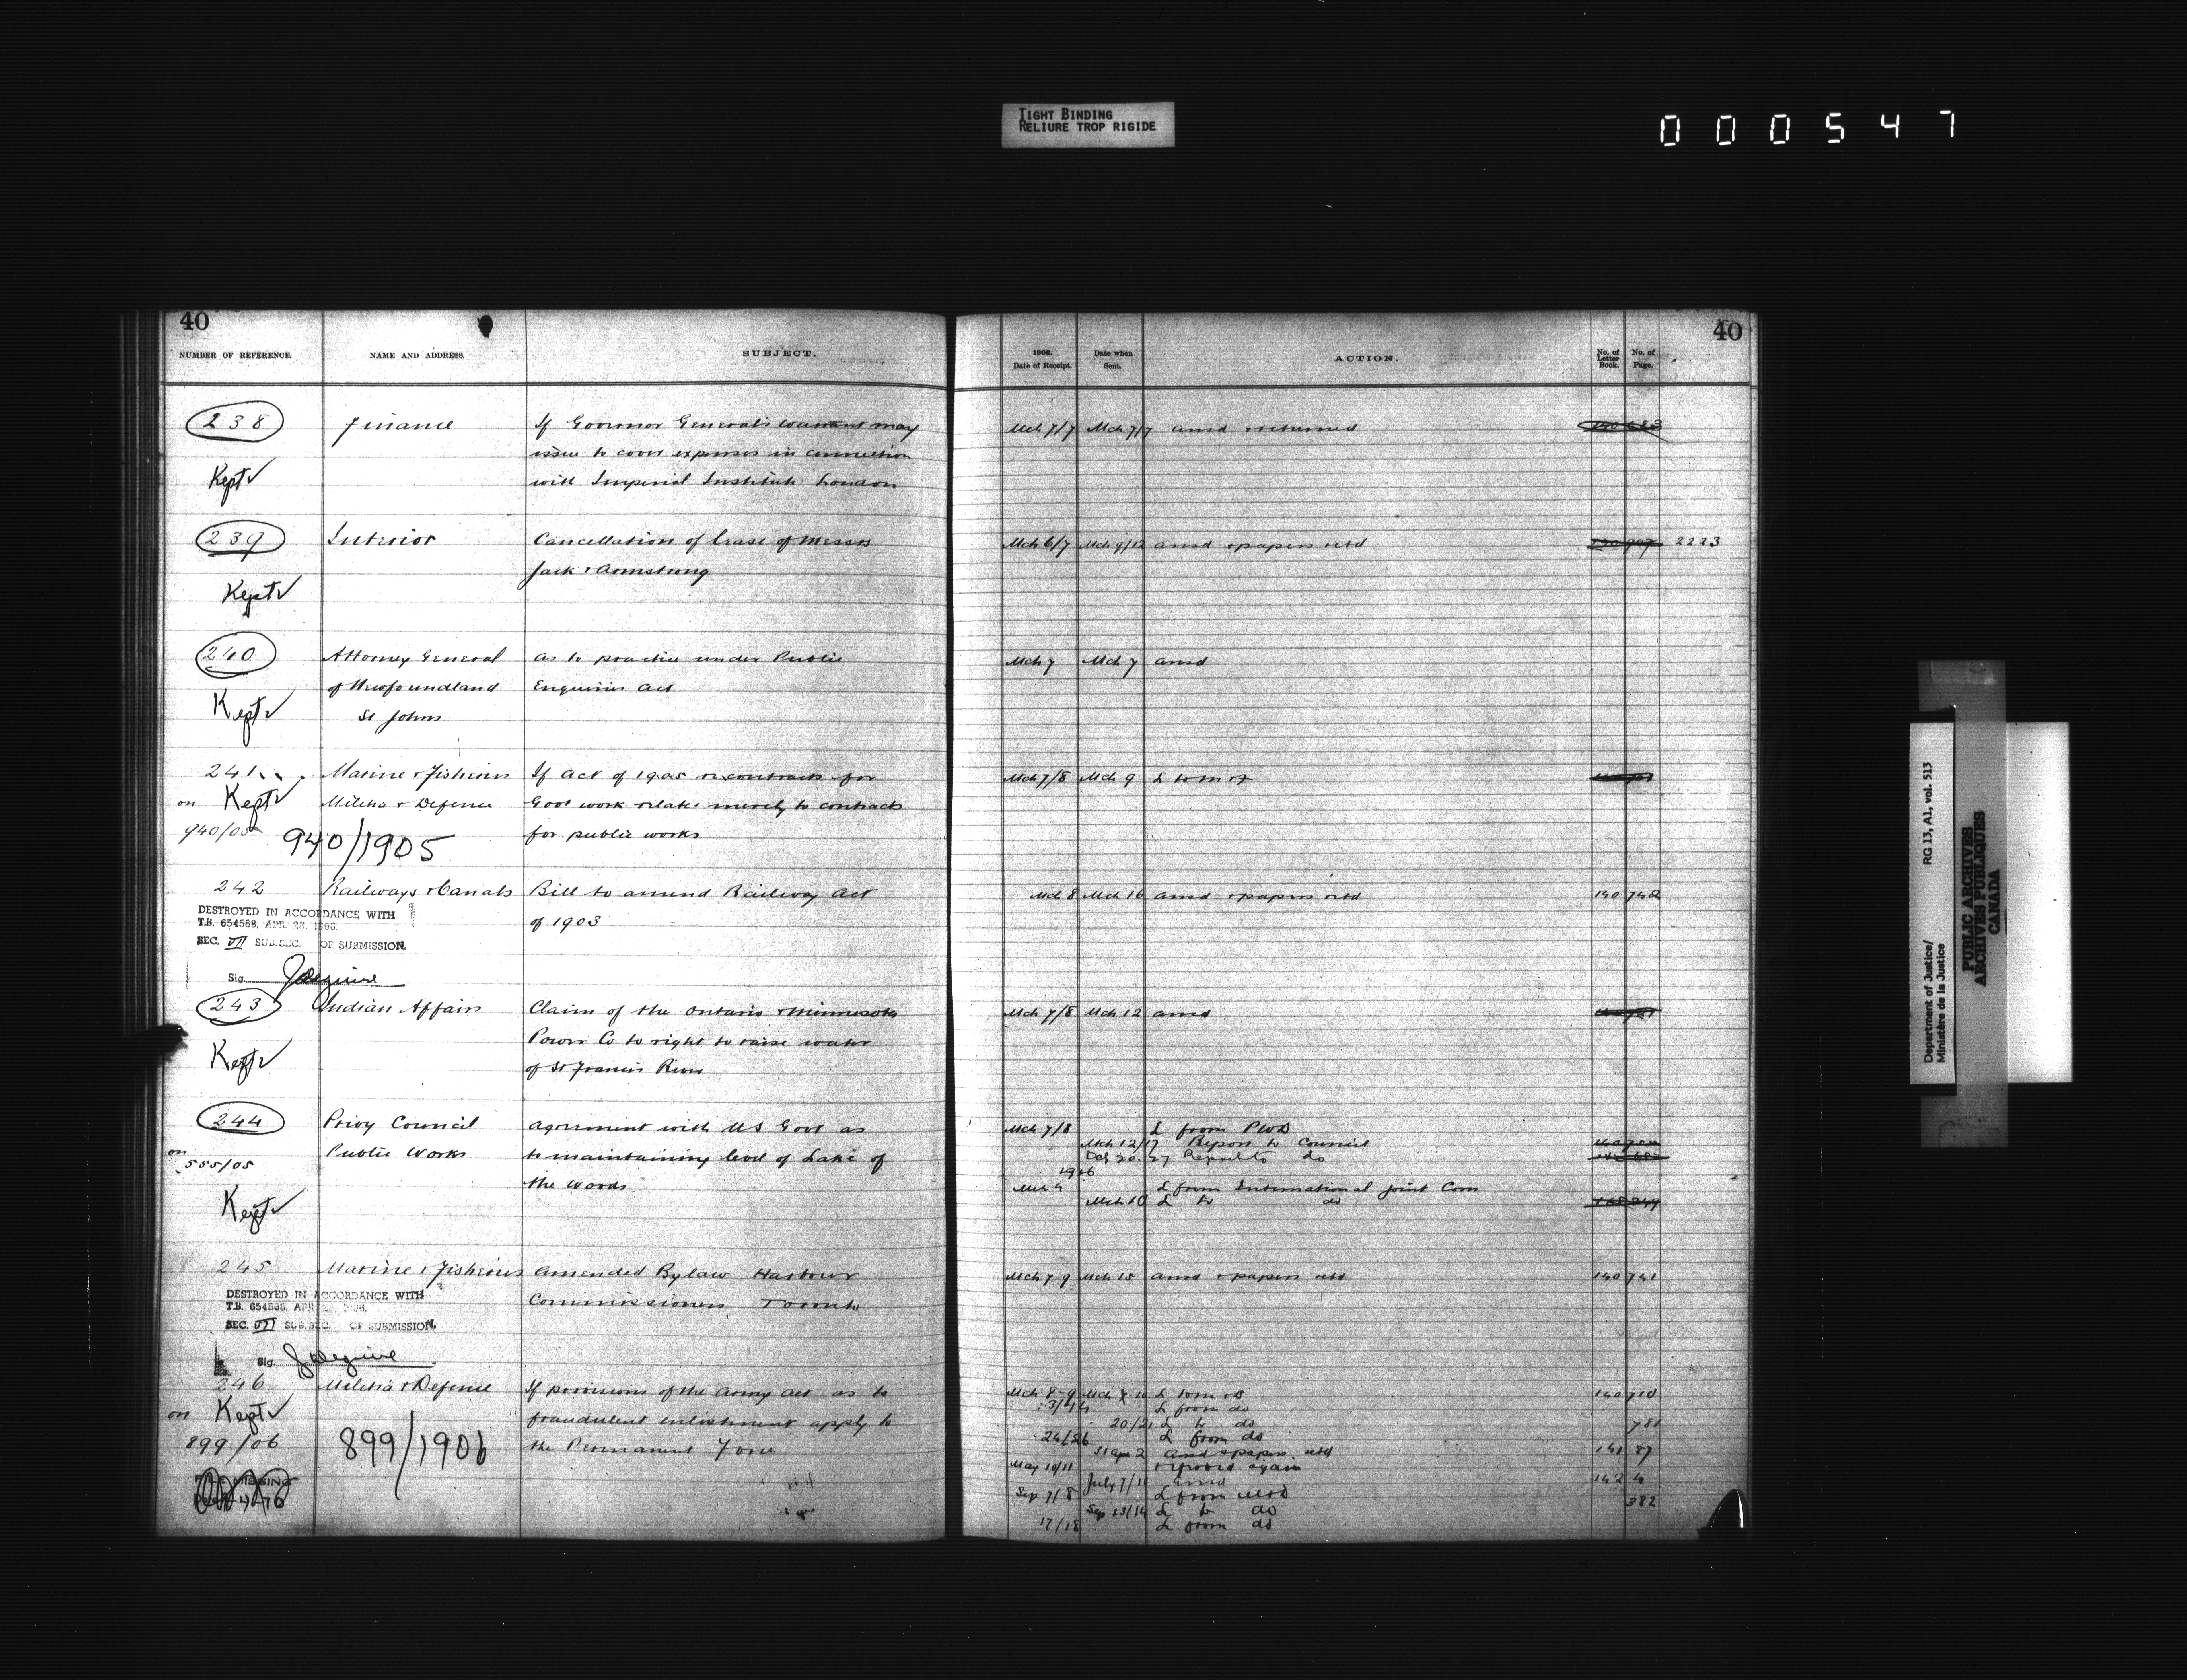 TIGHT BINDING
RELIURE TROP RIGIDE
000547
40
NUMBER OF REFERENCE.
NAME AND ADDRESS.
SUBJECT.
238
Finance
If Governor General's warrant may
issue to cover expenses in connection
with Imperial Institute London
Kept
239
Interior
Cancellation of lease of Messrs
Jack & Armstrong
Kept
240
Attorney General
of Newfoundland
St Johns
as to practice under Public
Enquiries Act
Kept
241
on Kept
940/05
Marine & Fisheries
Militia & Defence
940/1905
If Act of 1905 re contracts for
Govt work relates merely to contracts
for public works
242
Railways & Canals
Bill to amend Railway Act
of 1903
DESTROYED IN ACCORDANCE WITH
T.B. 654568, APR. 28, 1966
SEC. VII SUB.SEC. OF SUBMISSION.
Sig.
243
Indian Affairs
Claim of the Ontario & Minnesota
Power Co to right to raise water
of St Francis River
Kept
244
on
555/05
Kept
Privy Council
Public Works
Agreement with US Govt as
to maintaining level of Lake of
the Woods
245
Marine & Fisheries
Amended Bylaw Harbour
Commissioners Toronto
DESTROYED IN ACCORDANCE WITH
T.B. 654568, APR
SEC. VII SUB.SEC. OF SUBMISSION.
Sig.
246
on Kept
899/06
Militia & Defence
899/1906
If provisions of the Army Act as to
fraudulent enlistment apply to
the Permanent Force
FILE MISSING
40
1906.
Date of Receipt.
Date when
Sent.
ACTION.
No. of
Letter
Book.
No. of
Page.
Mch 7/7 Mch 7/7 ansd & returned
Mch 6/7 Mch 9/12 ansd & papers retd 2223
Mch 7 Mch 7 ansd
Mch 7/8 Mch 9 L to M & F
Mch 8 Mch 16 ansd & papers retd 140 742
Mch 7/8 Mch 12 ansd
Mch 7/8 L from PWD
Mch 12/17 Report to Council
27 Report to do
1916
L from International Joint Com
Mch 10 L to do
Mch 7 9 Mch 15 ansd & papers retd 140 741
Mch 8-9 L to M & D 140 710
L from do
20/21 L to do 781
24/26 L from do
31 Apr 2 ansd & papers retd 141 87
May 10/11 referred again
July 7/11 ansd 142 4
Sep 7/8 L from M & D
Sep 13/14 L to do 382
17/18 L from do
Department of Justice/
Ministère de la Justice
RG 13, A1, vol. 513
PUBLIC ARCHIVES
ARCHIVES PUBLIQUES
CANADA